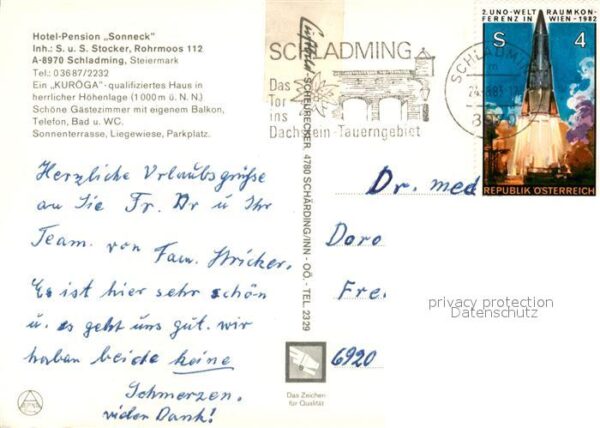 Hotel-Pension „Sonneck"
Inh.: S. u. S. Stocker, Rohrmoos 112
A-8970 Schladming, Steiermark
Tel.: 03687/2232
Ein „KURÖGA"-qualifiziertes Haus in
herrlicher Höhenlage (1000 m ü. N. N.)
Schöne Gästezimmer mit eigenem Balkon,
Telefon, Bad u. WC.
Sonnenterrasse, Liegewiese, Parkplatz.
Herzliche Urlaubsgrüße
an Sie Fr. Dr u Ihr
Team. von Fam. Stricker.
Es ist hier sehr schön
u. es geht uns gut. wir
haben beide keine
Schmerzen.
vielen Dank!
Luftbild SCHEURECKER 4780 SCHÄRDING/INN - OÖ. - TEL. 2329
SCHLADMING
Das
Tor
ins
Dachstein-Tauerngebiet
SCHLADMING
2. UNO-WELTRAUMKON-
FERENZ IN WIEN - 1982
S 4
REPUBLIK ÖSTERREICH
Dr. med
Doro
Fre.
6920
privacy protection
Datenschutz
Das Zeichen
für Qualität